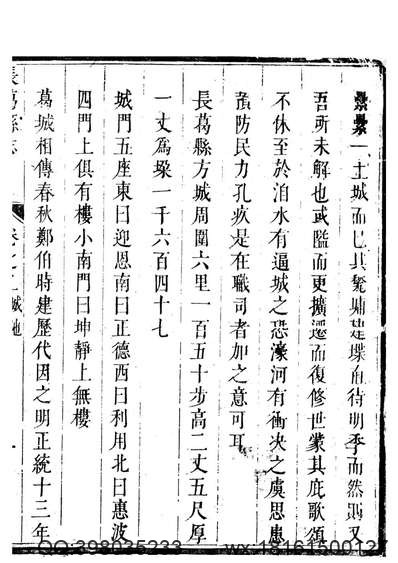 纍纍一土城而已其甃甓建堞直待明季而然則又
吾所未解也或隘而更擴遷而復修世蒙其庇歌頌
不休至於洎水有逼城之恐濠河有衝決之虞思患
豫防民力孔疚是在職司者加之意可耳
長葛縣方城周圍六里一百五十步高二丈五尺厚
一丈爲垜一千六百四十七
城門五座東曰迎恩南曰正德西曰利用北曰惠波
四門上俱有樓小南門曰坤靜上無樓
葛城相傳春秋鄭伯時建歷代因之明正統十三年
長葛縣志 卷之二 城池 一
QQ:398035233 wx:18161500127